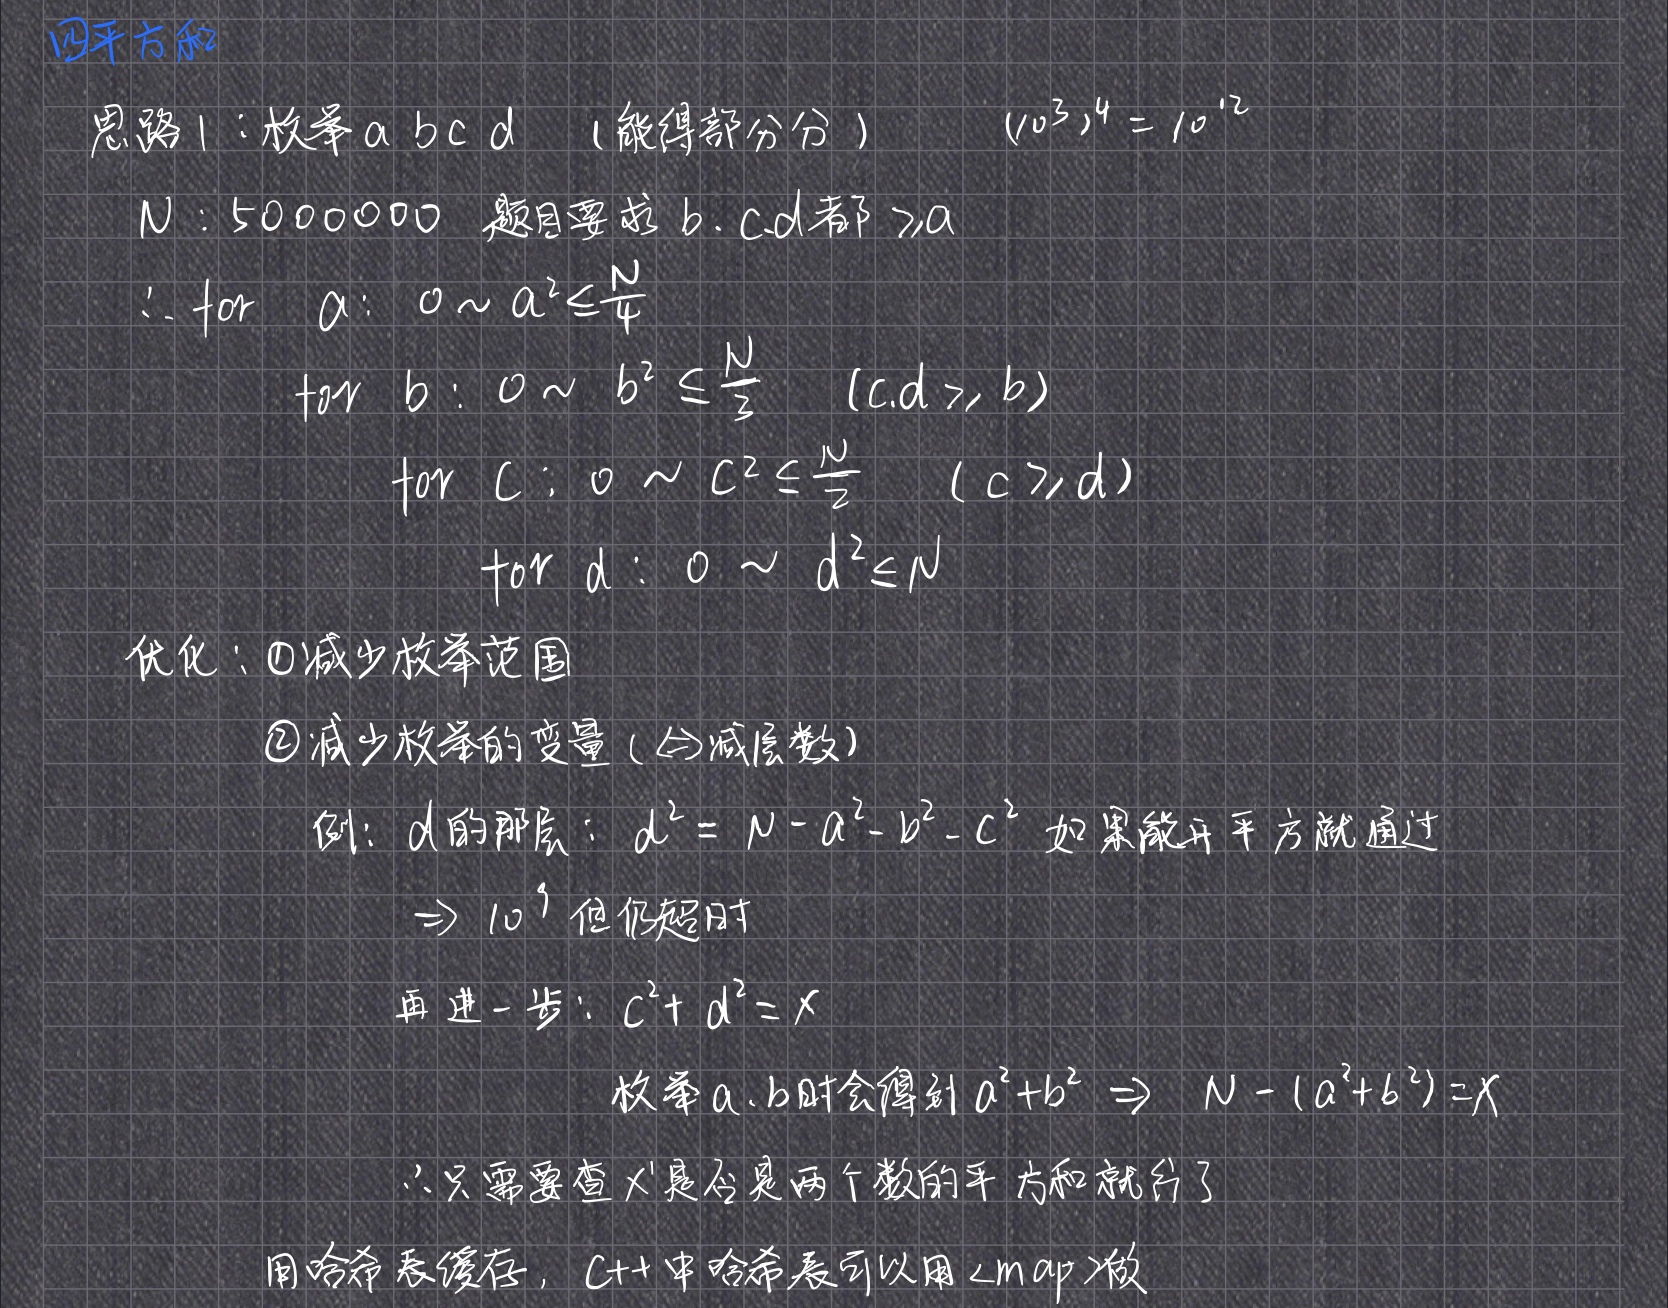 四平方和
思路1：枚举 a b c d （能得部分分） (10³)⁴ = 10¹²
N：5000000 题目要求 b.c.d都≥a
∴ for a: 0 ~ a² ≤ N/4
for b: 0 ~ b² ≤ N/3 (c.d ≥ b)
for c: 0 ~ c² ≤ N/2 (c ≥ d)
for d: 0 ~ d² ≤ N
优化：①减少枚举范围
②减少枚举的变量（⇔减层数）
例：d的那层：d² = N - a² - b² - c² 如果能开平方就通过
⇒ 10⁹ 但仍超时
再进一步：c² + d² = x
枚举a、b时会得到 a²+b² ⇒ N - (a²+b²) = x
∴只需要查x是否是两个数的平方和就行了
用哈希表缓存，C++中哈希表可以用<map>做